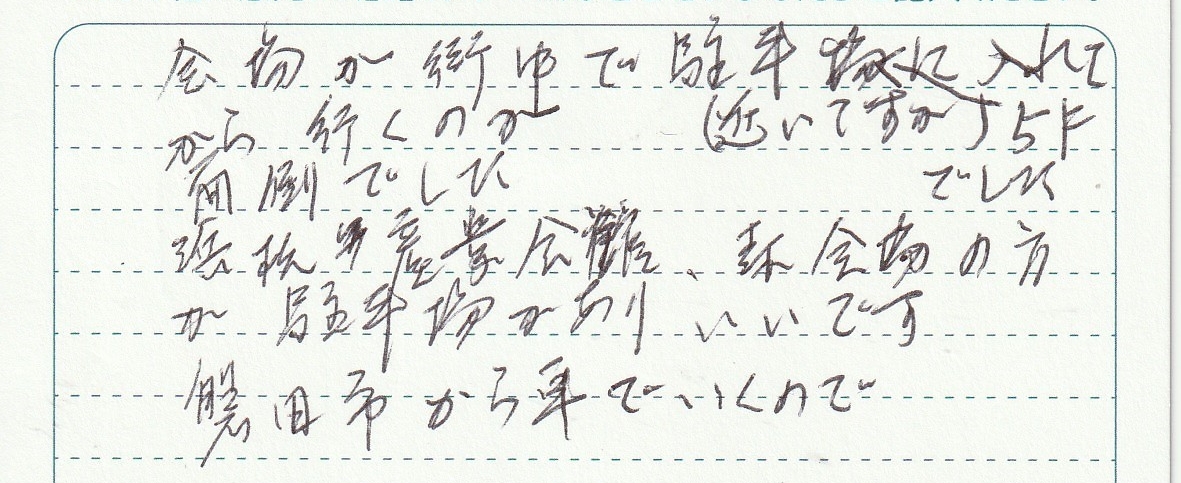 会場が街中で駐車場に入れて
から行くのが (近いですが) 5F
面倒でした でした
浜松市産業会館、会場の方
が駐車場があり、いいです
磐田市から車でいくので